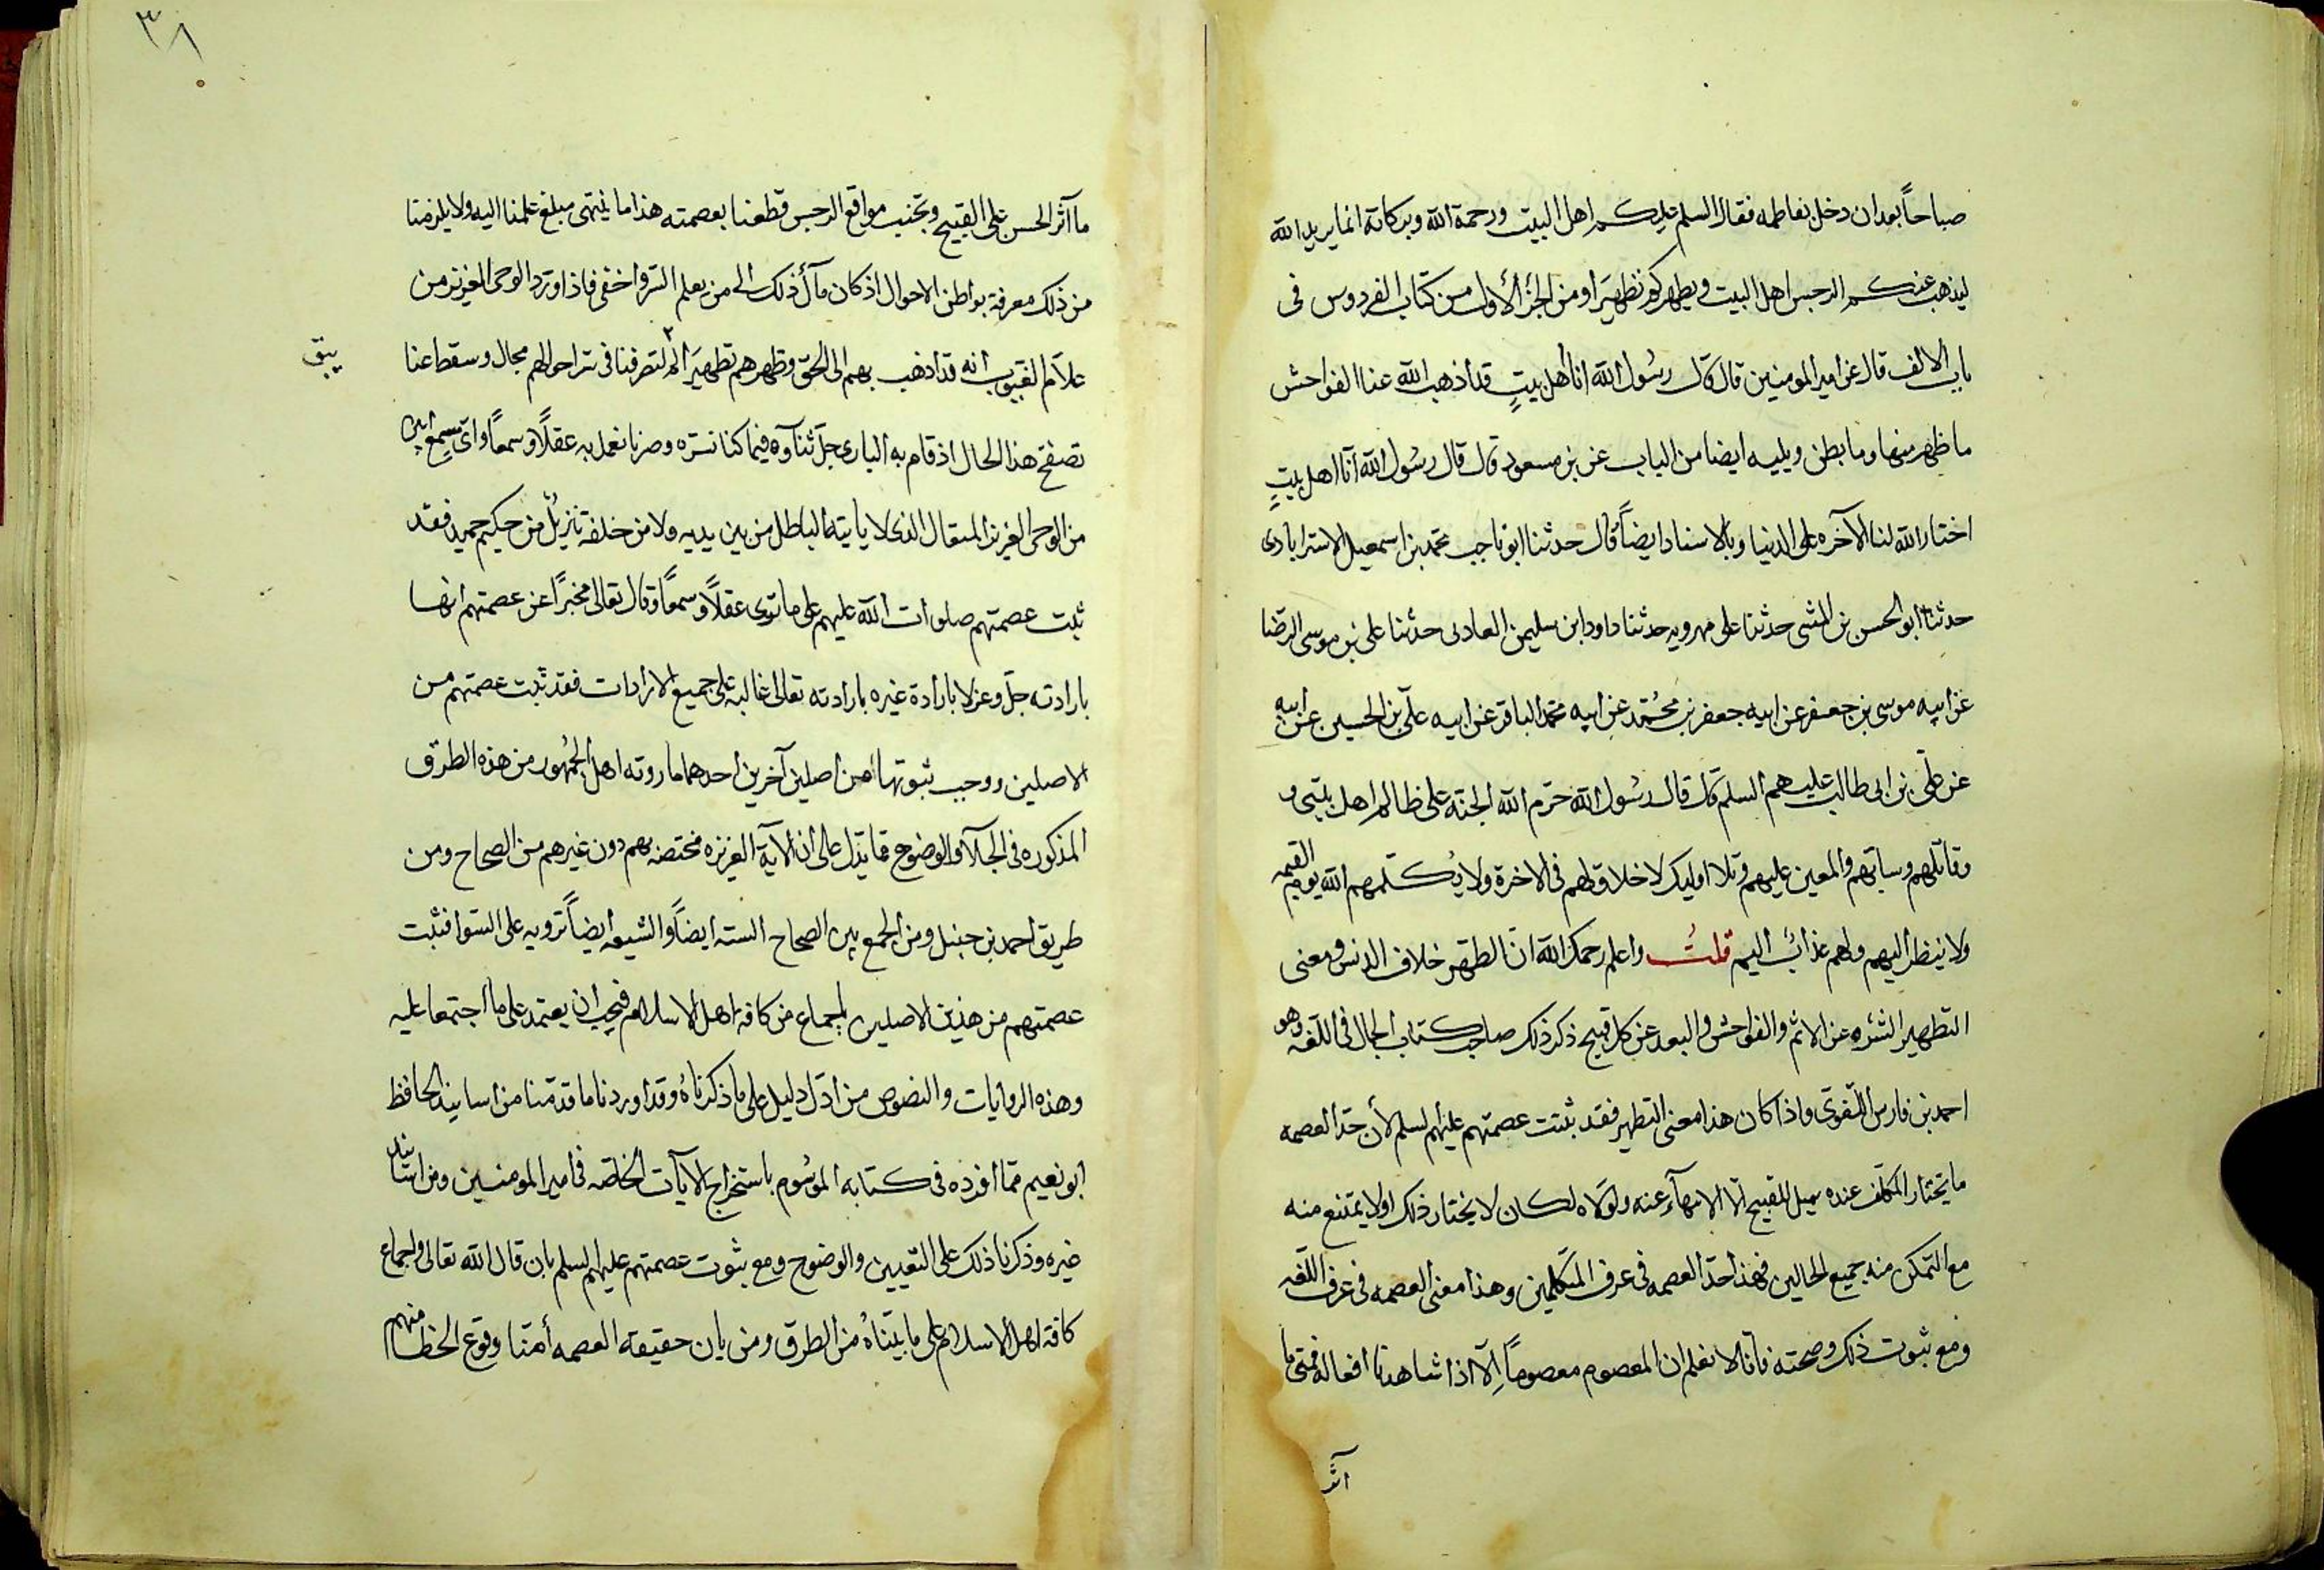 صباحاً بعد ان دخل بفاطمه فقال السلم عليكم اهل البيت ورحمة الله وبركاته انما يريد الله
ليذهب عنكم الرجس اهل البيت ويطهركم تطهيرا ومن الجزء الأول من كتاب الفردوس فى
باب الالف قال عن امير المومنين قال قال رسُول الله انا اهل بيتٍ قد أذهب الله عنا الفواحش
ما ظهر منها وما بطن ويليه ايضا من الباب عن بن مسعود قال قال رسُول الله انا اهل بيتٍ
اختار الله لنا الآخره على الدنيا وبالاسناد ايضاً قال حدثنا ابو ناجب محمد بن اسمعيل الاسترابادى
حدثنا ابو الحسن بن المثنى حدثنا على مهرويه حدثنا داود ابن سليمن العادى حدثنا على بن موسى الرضا
عن ابيه موسى بن جعفر عن ابيه جعفر بن محُمّد عن ابيه محمد الباقر عن ابيه علىّ بن الحسين عن ابيه
عن علىّ بن ابى طالب عليهم السلم قال قال رسُول الله حرّم الله الجنة على ظالم اهل بيتى و
وقاتلهم وسابّهم والمعين عليهم وتلا اوليك لا خلاق لهم فى الاخرة ولا يُكلّمهم الله يوم القيمه
ولا ينظر اليهم ولهم عذابٌ اليم قلتُ واعلم رحمك الله انّ الطهر خلاف الدنس ومعنى
التطهير التنزه عن الاثم والفواحش والبعد عن كل قبيح ذكر ذلك صاحب كتاب المجمل فى اللّغه وهو
احمد بن فارس اللّغوى واذا كان هذا معنى التطهير فقد ثبتت عصمتهم عليهم لسلم لأن حدّ العصمه
ما يختار المكلف عنده ميل للقبيح الّا الانتهآء عنه ولولاه لكان لا يختار ذلك اولا يمتنع منه
مع التمكن منه جميع الحالين فهذا حدّ العصمه فى عرف المتكلمين وهذا معنى العصمه فى عرف اللّغه
ومع ثبوت ذلك وصحته فانا لا نعلم ان المعصوم معصوماً اِلّا اذا شاهدنا افعاله فمتى ما
آثر
٣٨
ما آثر الحسن على القبيح وتجنب مواقع الرجس قطعنا بعصمته هذا ما ينتهى مبلغ علمنا اليه ولا يلزمنا
من ذلك معرفة بواطن الاحوال اذ كان مآل ذلك الى من يعلم السّر واخفى فاذا ورد الوحى العزيز من
علاّم الغيوب انه قد اذهب بهم الى الحق وطهرهم تطهيرًا لم لتصرفنا فى سرّ احوالهم مجال وسقط عنا
يبق
تصفح هذا الحال اذ قام به البارى جلّ ثناؤه فيما كنا نسّره وصرنا نعمل به عقلًا وسمعاً واىّ سمع ابين
من الوحى العزيز المتعال الذى لا ياتيه الباطل من بين يديه ولا من خلفه تنزيلٌ من حكيم حميد فقد
ثبت عصمتهم صلوات الله عليهم على ما ترى عقلاً وسمعًا وقال تعالى مخبراً عن عصمتهم انها
بارادته جلّ وعز لا بارادة غيره بارادته تعالى غالبه على جميع الارادات فقد ثبت عصمتهم من
الاصلين ووجب ثبوتها من اصلين آخرين احدهما ما روته اهل الجمُهور من هذه الطرق
المذكوره فى الجلآ والوضوح مما يدّل على ان الآية العزيزه مختصه بهم دون غيرهم من الصحاح ومن
طريق احمد بن حنبل ومن الجمع بين الصحاح السته ايضاً والشيعه ايضاً ترويه على السّوا فثبت
عصمتهم من هذين الاصلين باجماع من كافه اهل الاسلام فيجب ان يعتمد على ما اجتمعا عليه
وهذه الروايات والنصوص من ادّل دليل على ما ذكرناهُ وقد اوردنا ما قدّمنا من اسانيد الحافظ
ابو نعيم ممّا افرده فى كتابه الموسُوم باستخراج الآيات الخاصّه فى امير المومنين ومن اسانيد
غيره وذكرنا ذلك على التّعيين والوضوح ومع ثبوت عصمتهم عليهم لسلم بان قال الله تعالى واجماع
كافة اهل الاسلام على ما بيّناهُ من الطرق ومن بان حقيقه العصمه أمنّا وقوع الخطا منهم